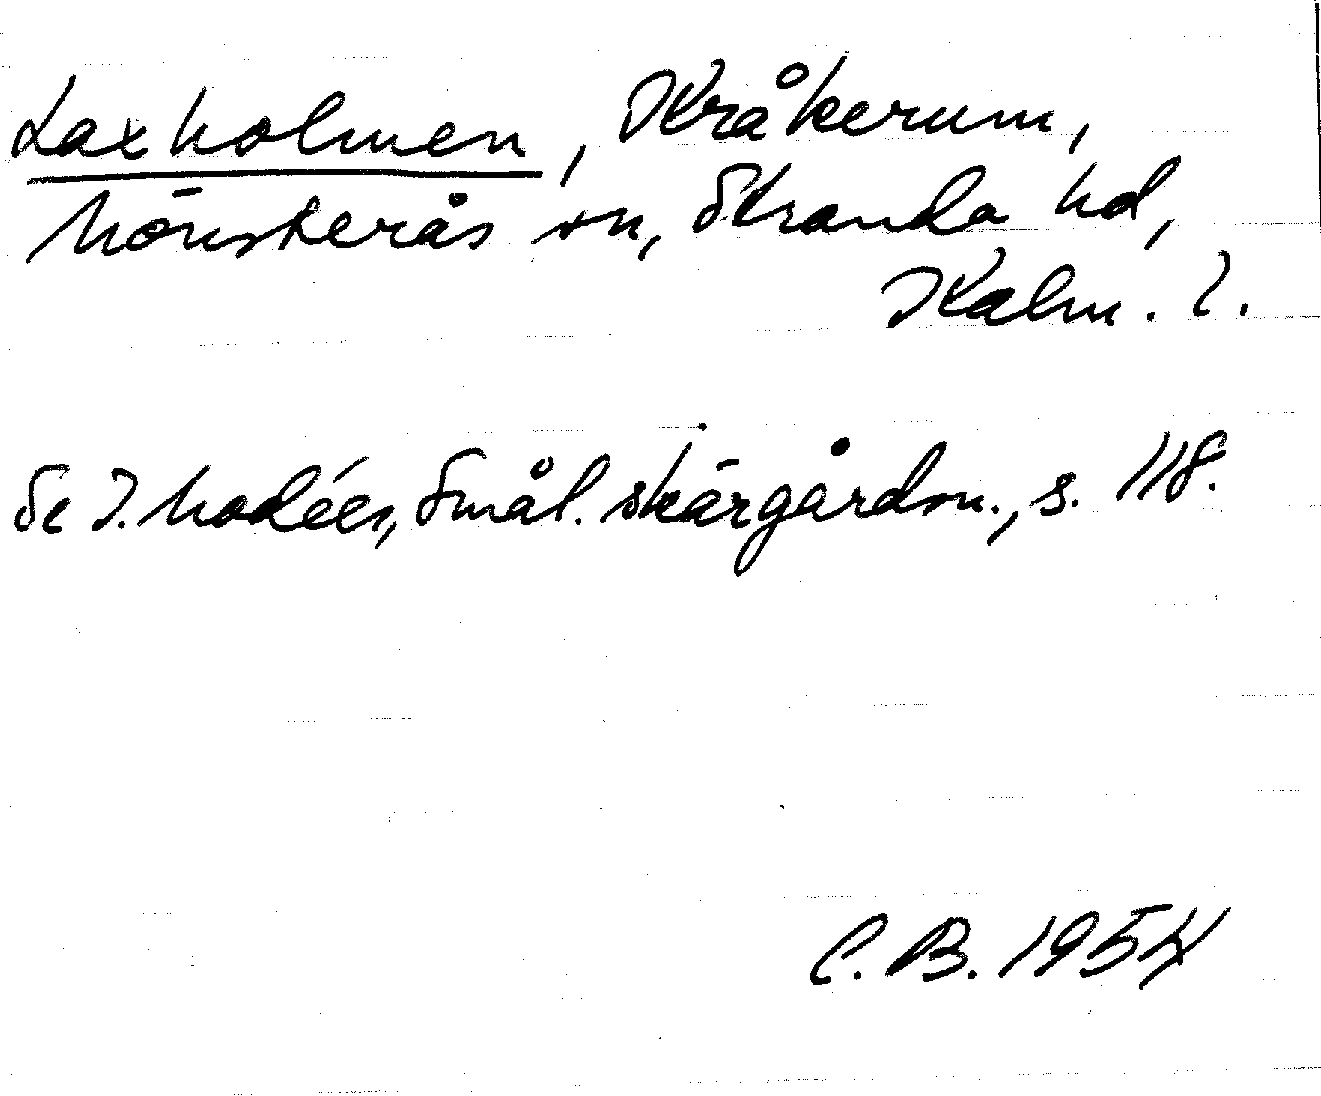 Laxholmen, Kråkerum,
Mönsterås sn, Stranda hd,
Kalm. l.
Se I. Modéer, Smål. skärgårdsn., s. 118.
C. B. 1954